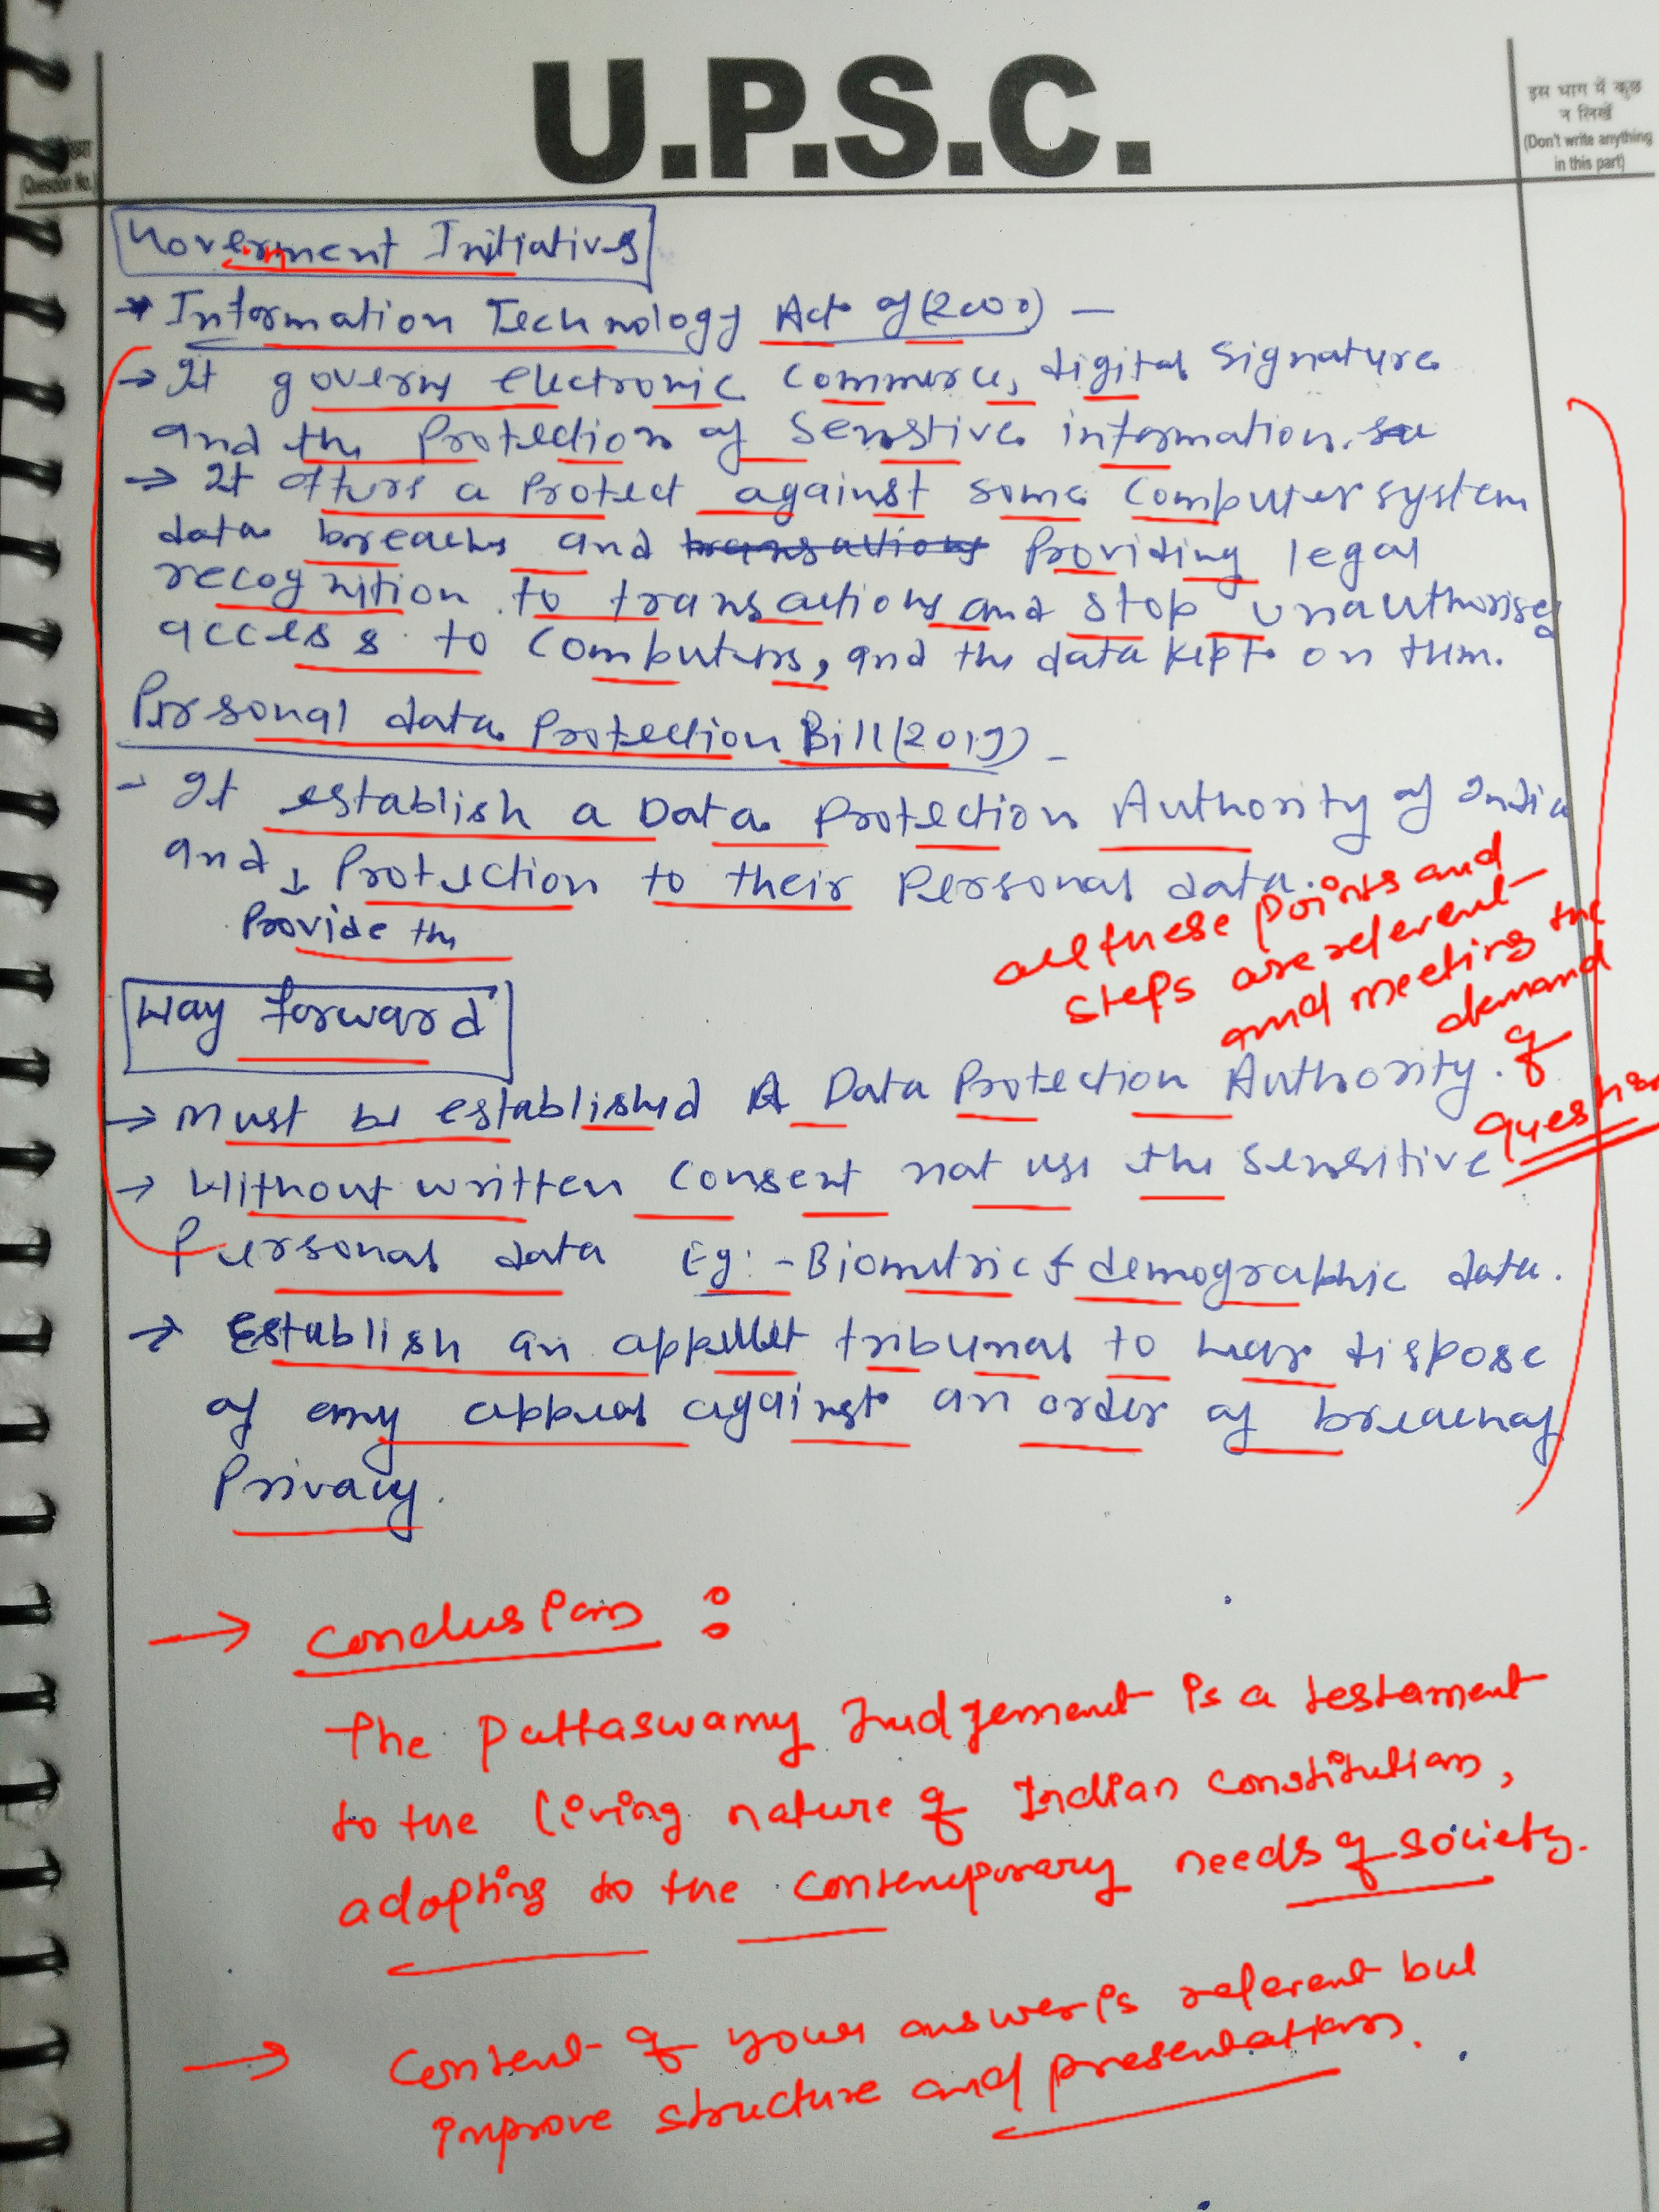 U.P.S.C.
इस भाग में कुछ
न लिखें
(Don't write anything
in this part)
(Question No.
Government Initiatives
→ Information Technology Act of (2000) –
→ It governs electronic commerce, digital signature
and the Protection of Senstive information.
→ It offers a Protect against some Computer system
data breachs and transactions Providing legal
recognition to transactions and stop unauthorised
access to Computers, and the data kept on them.
Personal data Protection Bill (2019) –
- It establish a Data Protection Authority of India
and ↓ Protection to their Personal data.
Provide the
all these points and
steps are relevent
and meeting the
demand
of
question
Way forward
→ Must be established A Data Protection Authority.
→ Without written Consent not use the Sensitive
Personal data Eg:- Biometric & demographic data.
→ Establish an appellet tribunal to hear dispose
of any appeal against an order of breach of
Privacy.
→ Conclusion :
The Puttaswamy Judgement is a testament
to the living nature of Indian constitution,
adopting to the contemporary needs of society.
→ Content of your answer is relevent but
improve structure and presentation.